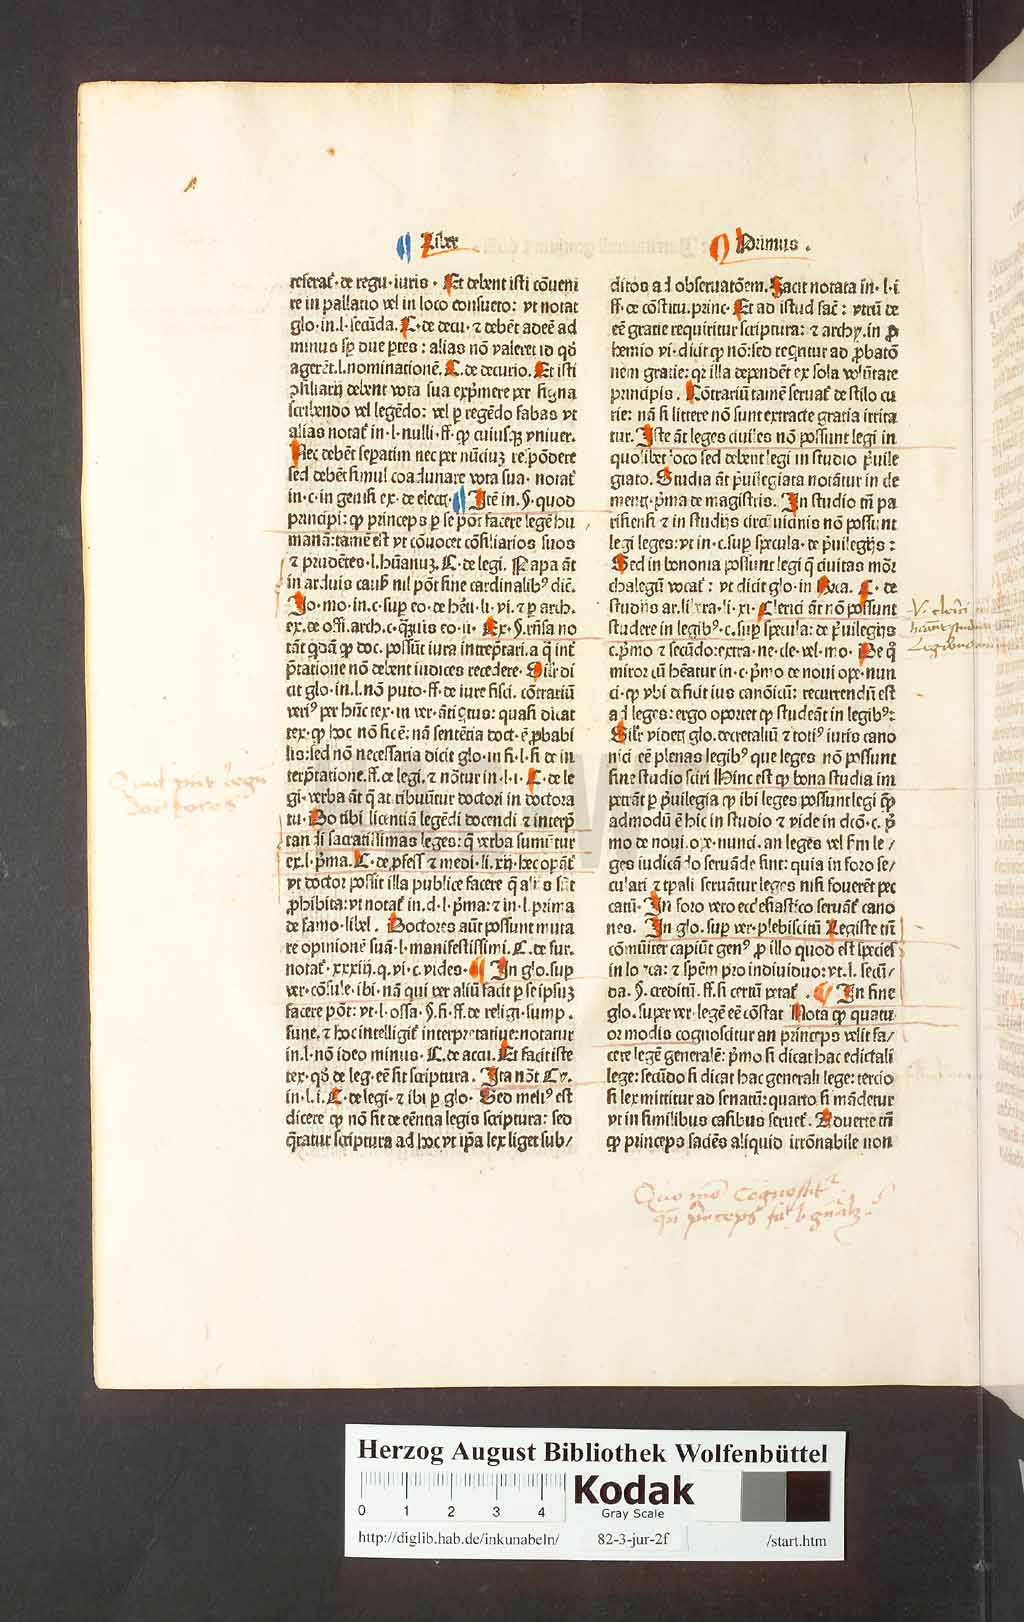 Liber
Primus .
referat̃· de regu· iuris · Et debent isti cõueni
re in pallatio vel in loco consueto: vt notat
glo·in·l·secũda. C·de decu· ⁊ debẽt adeẽ ad
minus sꝑ due ꝑtes: alias nõ valeret id qd̃
agerẽt.l.nominationẽ. C. de decurio. Et isti
ꝯsiliarij debent vota sua exp̃mere per signa
scribendo vel legẽdo: vel ꝑ regẽdo fabas vt
alias notat̃ in·l·nulli·ff·ꝙ cuiusꝗ vniuer.
Nec debẽt sep̃atim nec per nũciuꝫ respõdere
sed debẽt simul coadunare vota sua· notat̃
in·c·in genesi ex·de elect· Itẽ in·§·quod
principi: ꝙ princeps ꝑ se põt facere legẽ hu
manã: tamẽ est vt cõuocet cõsiliarios suos
⁊ prudẽtes·l·hũanuꝫ. C·de legi. Papa ãt
in arduis causꝭ nil põt sine cardinalibꝰ dic̃.
Jo·mo·in·c·suꝑ eo·de hẽti·li·vi·⁊ ꝑ arch.
ex.de offi.arch.c·ꝗ̃uis eo·ii· Ex·§·rñsa no
tãt quidã ꝙ doc. possũt iura intrep̃tari.a q̃ int̃
p̃tatione nõ debent iudices recedere. Sil̃r di
cit glo·in.l.nõ puto·ff·de iure fisci. cõtrariũ
veriꝰ per hũc tex·in ver·ãtiqtus: quasi dicat
tex·ꝙ hoc nõ sicẽ: nã sentẽtia doct·ẽ ꝓbabi
lis: sed nõ necessaria dicit glo·in fi·l·fi de in
terp̃tatione.ff.de legi.⁊ nõtur in·l·i· C·de le
gi·verba ãt q̃ attribuũtur doctori in doctora
tu· Do tibi licentiã legẽdi docendi ⁊ interp̃
tandi sacratissimas leges: q̃ verba sumũtur
ex.l·p̃ma. C·de ꝓfess ⁊ medi·li.xij·hec opãt̃
vt doctor possit illa publice facere q̃ alijs sũt
ꝓhibita: vt notat̃ in.d·l·p̃ma: ⁊ in·l·prima
de famo·libel. Doctores aũt possunt muta
re opinionẽ suã·l·manifestissimi. C.de fur.
notat̃·xxxiij.q.vi·c·vides· In glo.sup
ver·cõsule·ibi·nã qui per aliũ facit ꝑ seipsuꝫ
facere põt: vt·l·ossa· §·fi·ff·de religi·sump.
fune.⁊ hoc intelligit̃ interpretatiue: notatur
in.l·nõ ideo minus· C.de accu. Et facit iste
tex·qd̃ de leg·eẽ sit scriptura. Ita nõt Cy.
in·l·i. C·de legi·⁊ ibi ꝑ glo· Sed meliꝰ est
dicere ꝙ nõ sit de eẽntia legis scriptura: sed
q̃ratur scriptura ad hoc vt ip̃a lex liget sub/
ditos ad obseruatõem. Facit notata in·l·i
ff·de cõstitu.princ· Et ad istud fac̃: vtrũ de
eẽ gratie requiritur scriptura: ⁊ archy.in ꝓ
hemio vi·dicit ꝙ nõ: sed reqritur ad ꝓbatõ
nem gratie: qr illa dependẽt ex sola volũtate
principis. Cõtrariũ tamẽ seruat̃ de stilo cu
rie: nã si littere nõ sunt extracte gratia irrita
tur. Iste ãt leges ciuiles nõ possunt legi in
quolibet loco sed debent legi in studio p̃uile
giato. Studia ãt p̃uilegiata notãtur in cle
ment·p̃ma de magistris. In studio tñ pa
risiensi ⁊ in studijs circũuicinis nõ possunt
legi leges: vt in·c·suꝑ specula·de p̃uilegijs:
Sed in bononia possunt legi q̃ ciuitas mõr
chalegũ vocat̃: vt dicit glo·in C·de
studijs Clerici ãt nõ possunt
studere in legibꝰ·c.suꝑ specula: de p̃uilegijs
c.p̃mo ⁊ secũdo: extra·ne·de·vel·mo·
miror cũ heãtur in·c·p̃mo de noui ope·nun
ci·ꝙ vbi deficit ius canõicũ: recurrendũ est
ad leges: ergo oportet ꝙ studeãt in legibꝰ:
Sil̃r videtr glo.decretaliũ ⁊ totiꝰ iuris cano
nici eẽ plenas legibꝰ que leges nõ possunt
sine studio sciri Hinc est ꝙ bona studia im
petrãt ꝑ p̃uilegia ꝙ ibi leges possunt legi ꝗ̃
admodũ ẽ hic in studio ⁊ vide in dcõ·c.p̃
mo de noui.ope·nunci.an leges vel fm le/
ges iudicãdo seruãde sint: quia in foro se/
culari ⁊ tp̃ali seruãtur leges nisi fouerẽt pec
catũ· In foro vero ecc̃esiastico seruãt̃ cano
nes. In glo.suꝑ ver·plebiscitũ tñ
cõmũiter capiũt genꝰ ꝓ illo quod est species
in loyca: ⁊ sp̃em pro indiuiduo: vt.l. secũ/
da. §. creditũ. ff.si certũ petat̃ . In fine
glo.super ver·legẽ eẽ cõstat Nota ꝙ quatu
or modis cognoscitur an princeps velit fa/
cere legẽ generalẽ: p̃mo si dicat hac edictali
lege: secũdo si dicat hac generali lege: tercio
si lex mittitur ad senatũ: quarto si mãdetur
vt in similibus casibus seruet̃. Aduerte tñ
ꝙ princeps faciẽs aliquid irrõnabile non
doctores
Quo mõ cognoscit̃
qñ princeps
Herzog August Bibliothek Wolfenbüttel
0 1 2 3 4
Kodak
Gray Scale
http://diglib.hab.de/inkunabeln/ 82-3-jur-2f /start.htm